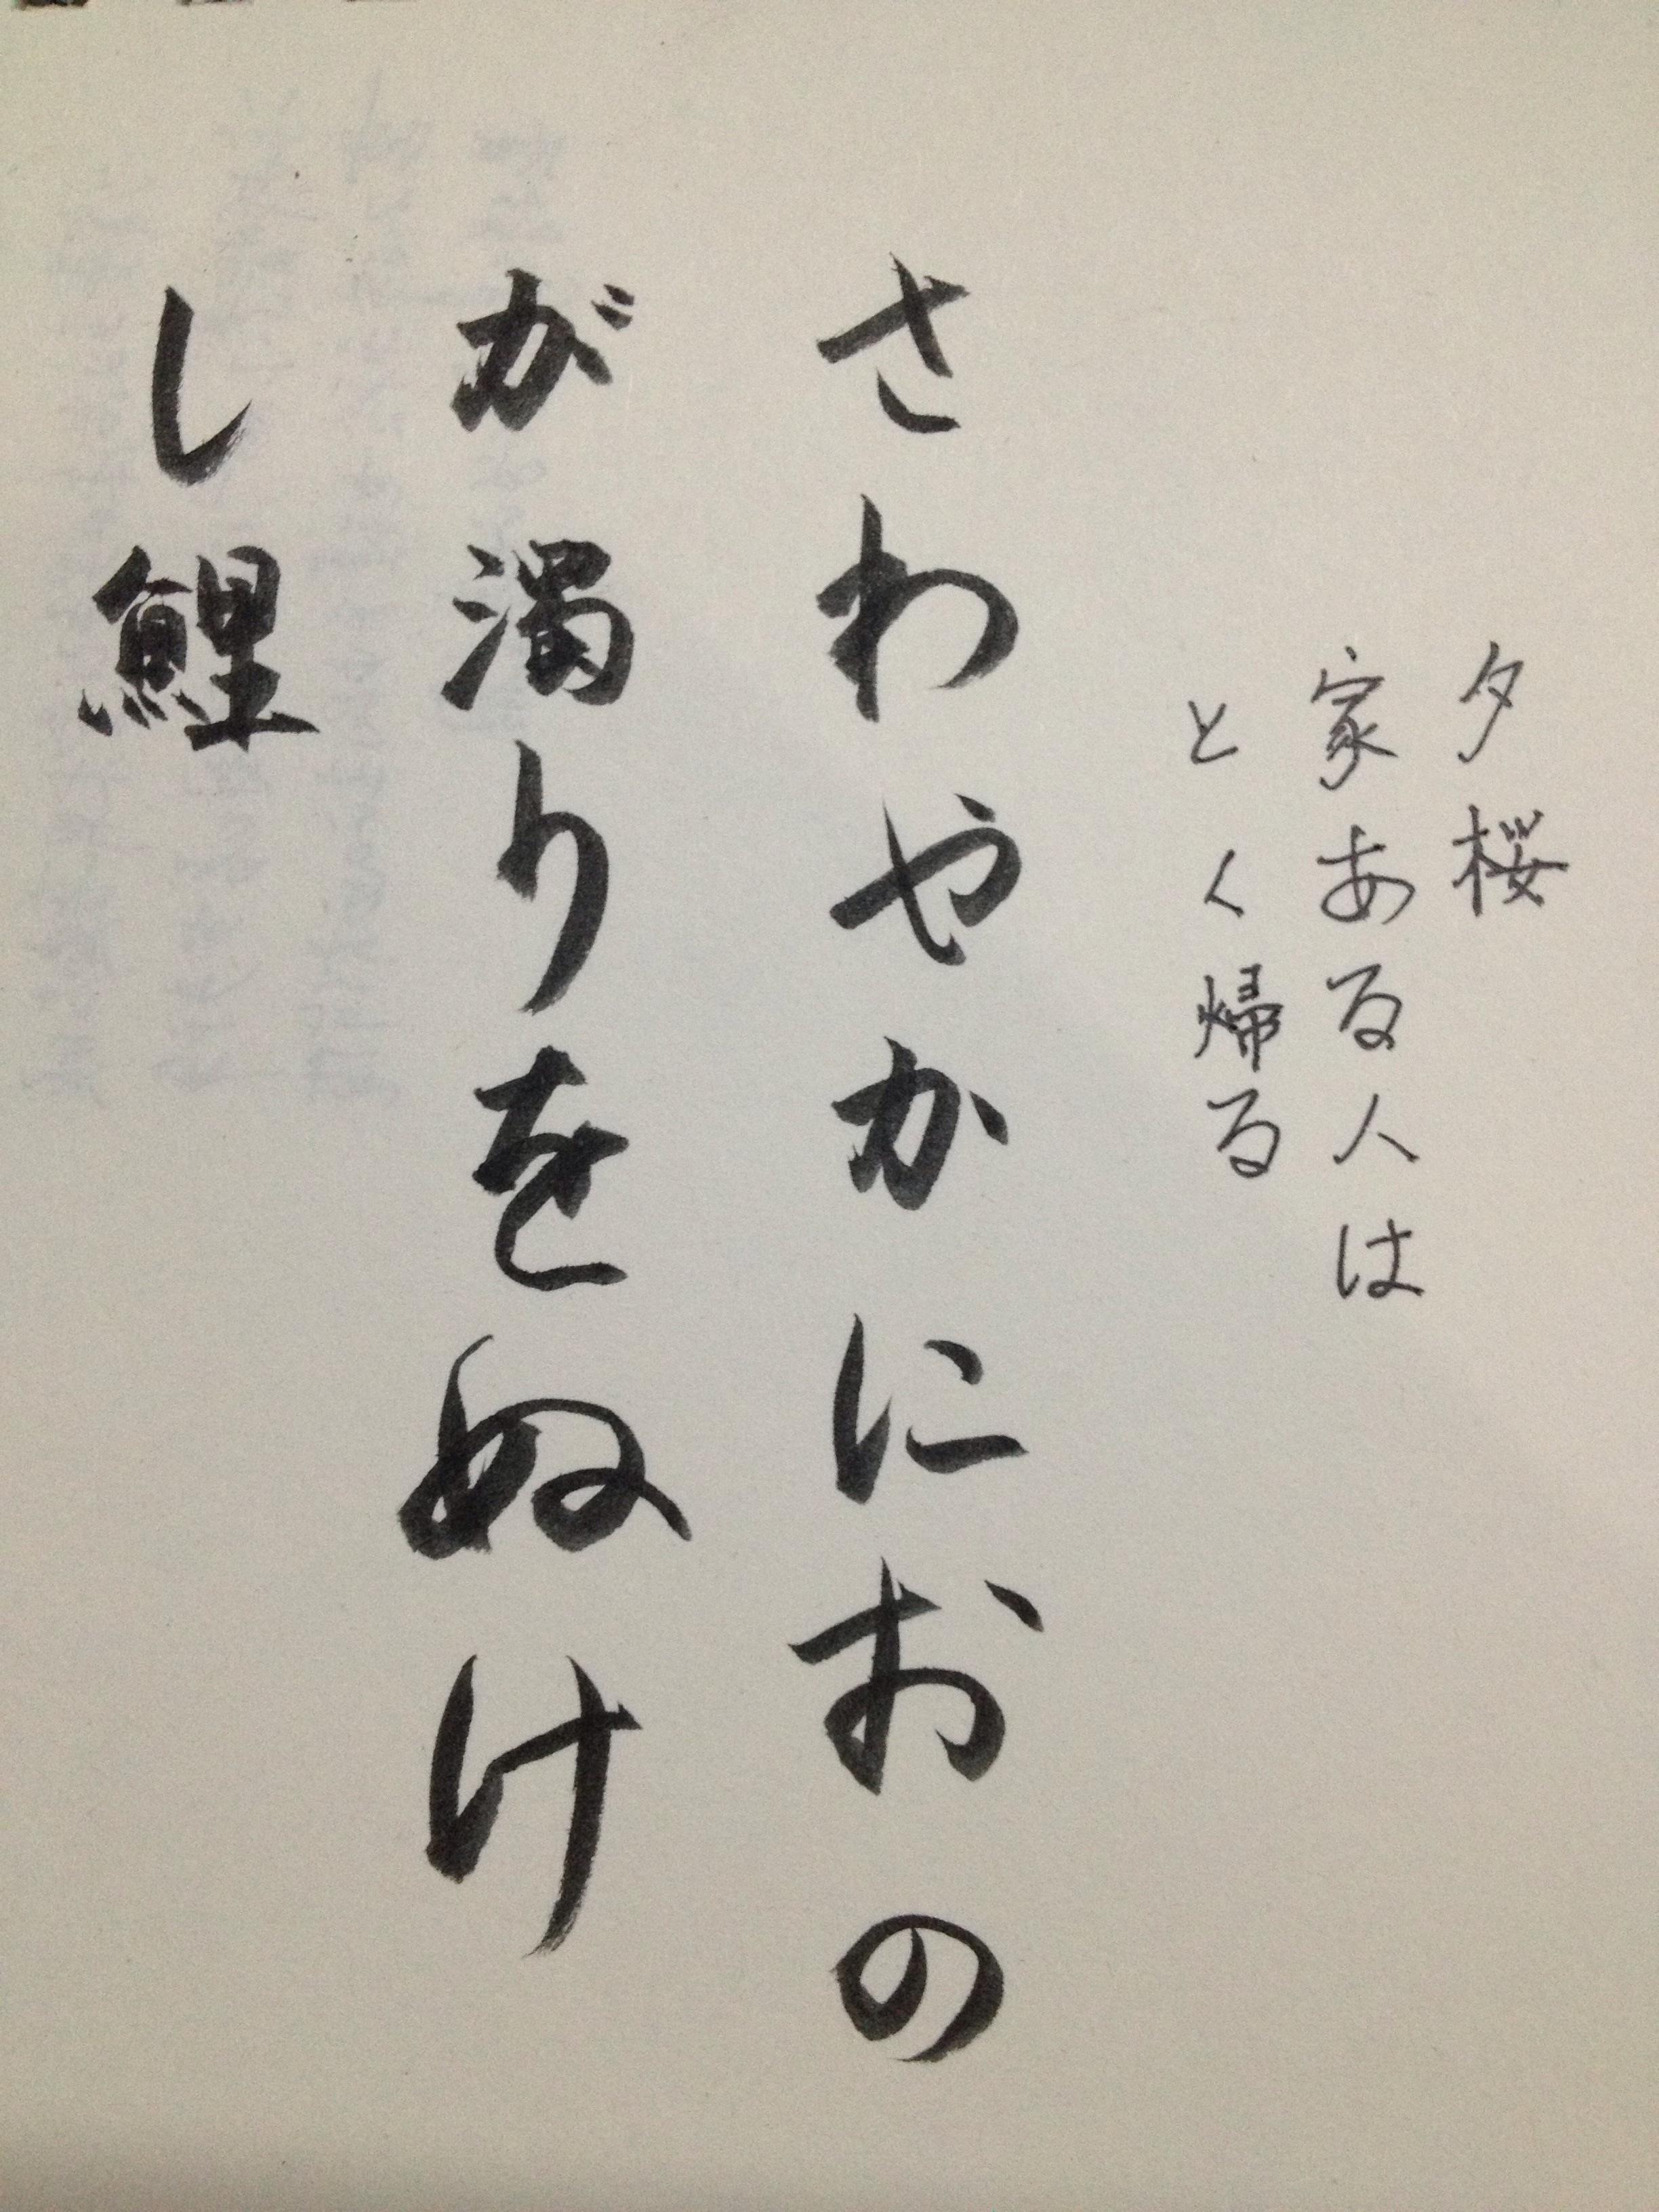 夕桜
家ある人は
とく帰る
さわやかにおの
が濁りをぬけ
し鯉